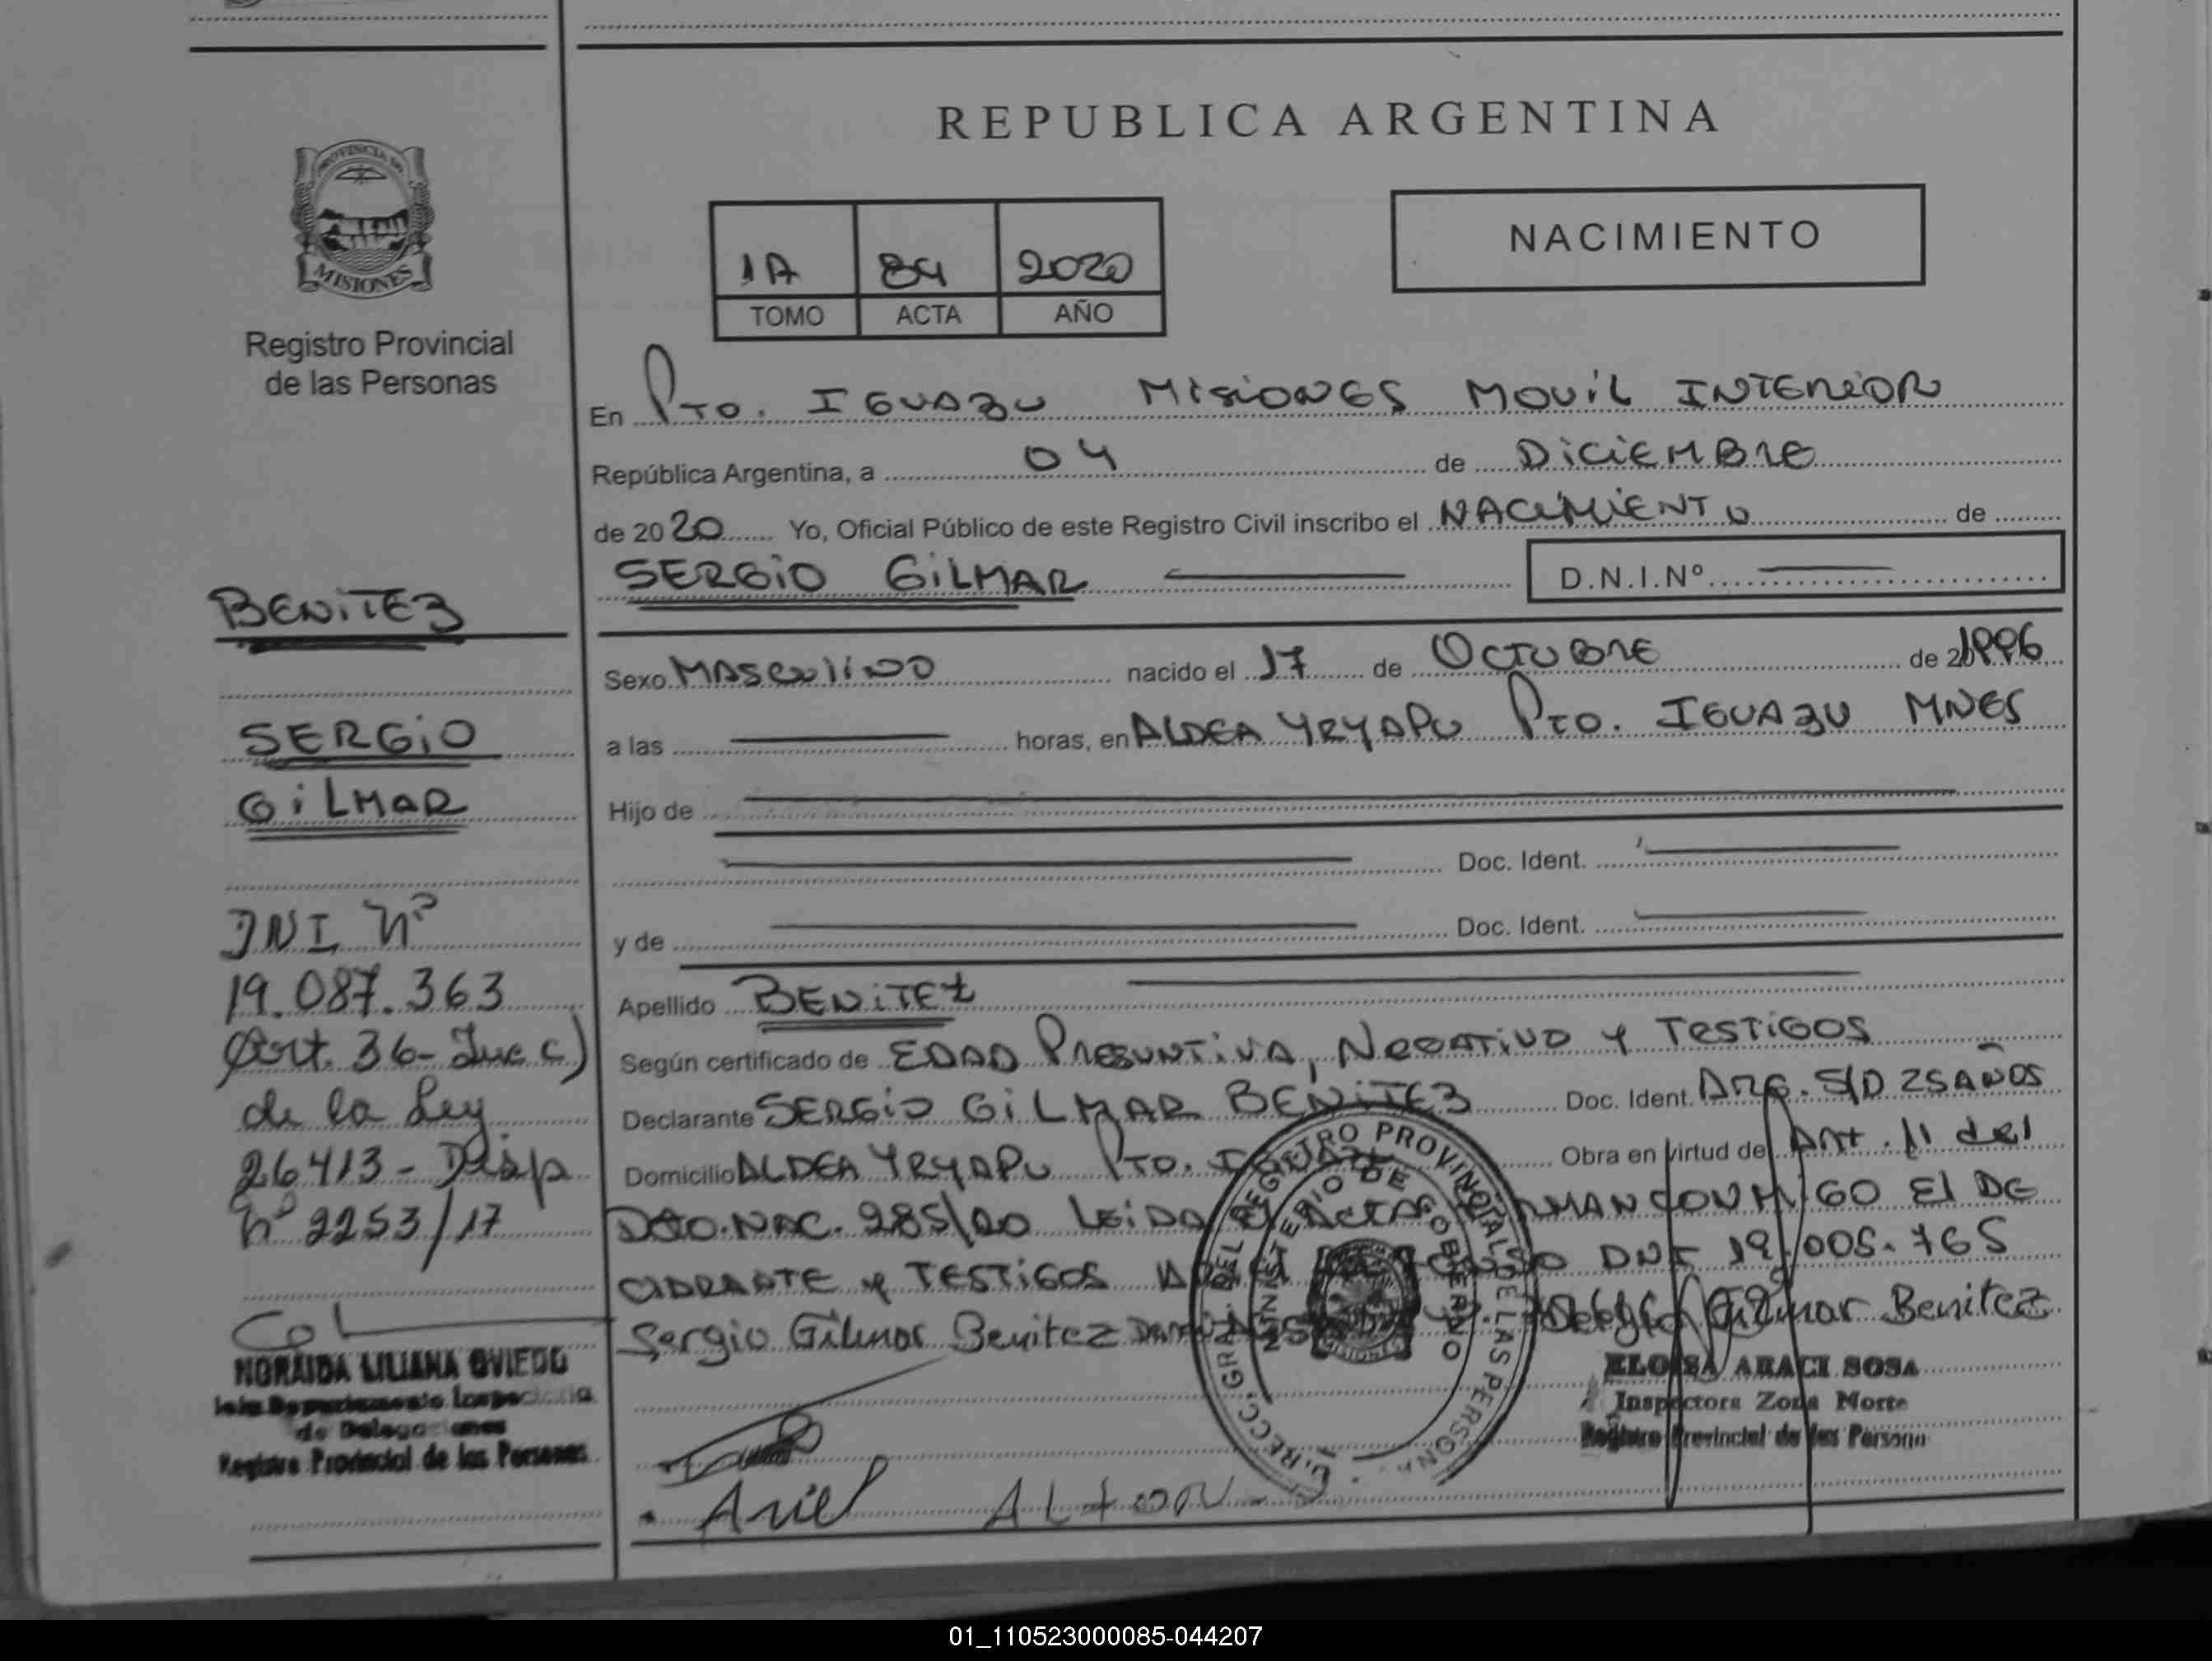 REPUBLICA ARGENTINA
PROVINCIA DE
MISIONES
Registro Provincial
de las Personas
1A 84 2020
TOMO ACTA AÑO
NACIMIENTO
En Pto. IGUAZU MISIONES MOVIL INTERIOR
República Argentina, a 04 de DICIEMBRE
de 2020 Yo, Oficial Público de este Registro Civil inscribo el NACIMIENTO de
SERGIO GILMAR D.N.I.Nº
Sexo MASCULINO nacido el 17 de OCTUBRE de 1996
a las horas, en ALDEA YRYAPU Pto. IGUAZU MNES
Hijo de
Doc. Ident.
y de Doc. Ident.
Apellido BENITEZ
Según certificado de EDAD PRESUNTIVA, NEGATIVO Y TESTIGOS
Declarante SERGIO GILMAR BENITEZ Doc. Ident. ARG. S/D 25 AÑOS
Domicilio ALDEA YRYAPU Pto. IGUAZU Obra en virtud del Art. 11 del
DTO. NAC. 285/20 LEIDA EL ACTA CONMIGO El DE
Y TESTIGOS DNI 19.005.765
Sergio Gilmar Benitez Sergio Gilmar Benitez
Ariel
DIRECC. GRAL. DEL REGISTRO PROVINCIAL DE LAS PERSONAS
MINISTERIO DE GOBIERNO
ELOISA ARACI SOSA
Inspectora Zona Norte
Registro Provincial de las Personas
BENITEZ
SERGIO
GILMAR
DNI Nº
19.087.363
(Art. 36- Inc c)
de la Ley
26413 - Disp
nº 2253/17
NORAIDA LILIANA OVIEDO
Jefa Departamento Inspectoría
de Delegaciones
Registro Provincial de las Personas
01_110523000085-044207